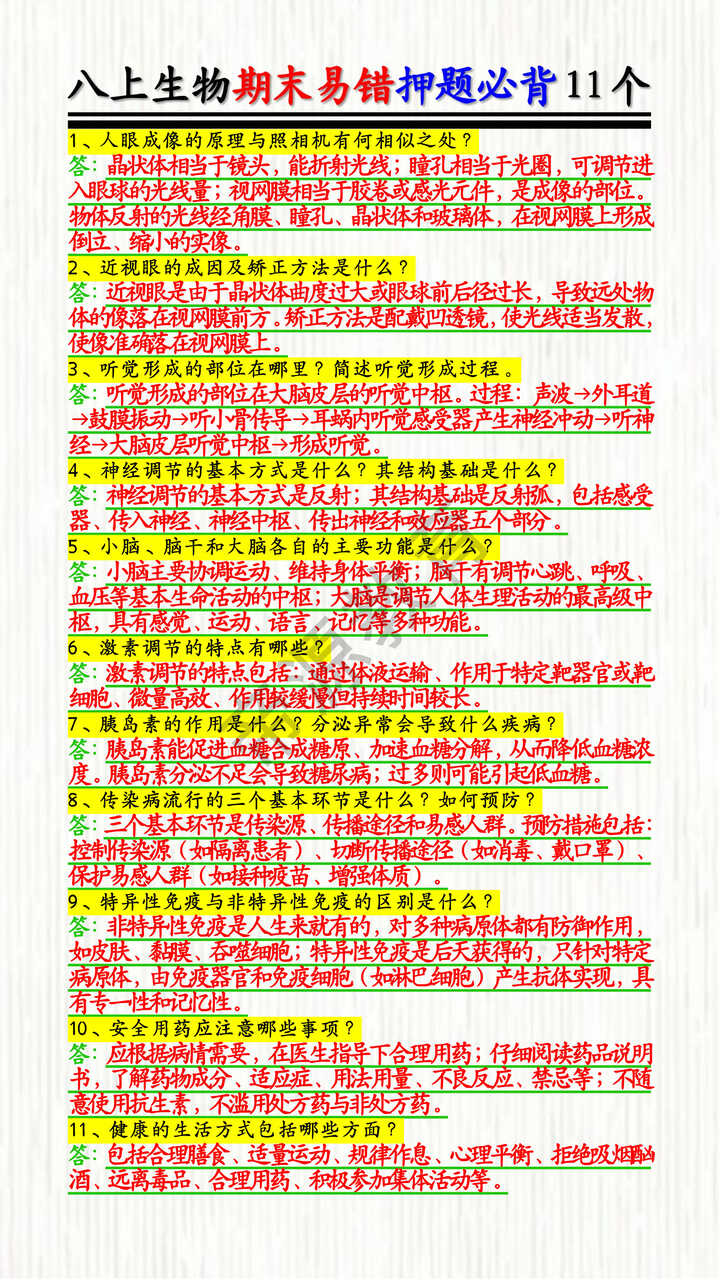 八上生物期末易错押题必背11个
1、人眼成像的原理与照相机有何相似之处？
答：晶状体相当于镜头，能折射光线；瞳孔相当于光圈，可调节进
入眼球的光线量；视网膜相当于胶卷或感光元件，是成像的部位。
物体反射的光线经角膜、瞳孔、晶状体和玻璃体，在视网膜上形成
倒立、缩小的实像。
2、近视眼的成因及矫正方法是什么？
答：近视眼是由于晶状体曲度过大或眼球前后径过长，导致远处物
体的像落在视网膜前方。矫正方法是配戴凹透镜，使光线适当发散，
使像准确落在视网膜上。
3、听觉形成的部位在哪里？简述听觉形成过程。
答：听觉形成的部位在大脑皮层的听觉中枢。过程：声波→外耳道
→鼓膜振动→听小骨传导→耳蜗内听觉感受器产生神经冲动→听神
经→大脑皮层听觉中枢→形成听觉。
4、神经调节的基本方式是什么？其结构基础是什么？
答：神经调节的基本方式是反射；其结构基础是反射弧，包括感受
器、传入神经、神经中枢、传出神经和效应器五个部分。
5、小脑、脑干和大脑各自的主要功能是什么？
答：小脑主要协调运动、维持身体平衡；脑干有调节心跳、呼吸、
血压等基本生命活动的中枢；大脑是调节人体生理活动的最高级中
枢，具有感觉、运动、语言、记忆等多种功能。
6、激素调节的特点有哪些？
答：激素调节的特点包括：通过体液运输、作用于特定靶器官或靶
细胞、微量高效、作用较缓慢但持续时间较长。
7、胰岛素的作用是什么？分泌异常会导致什么疾病？
答：胰岛素能促进血糖合成糖原、加速血糖分解，从而降低血糖浓
度。胰岛素分泌不足会导致糖尿病；过多则可能引起低血糖。
8、传染病流行的三个基本环节是什么？如何预防？
答：三个基本环节是传染源、传播途径和易感人群。预防措施包括：
控制传染源（如隔离患者）、切断传播途径（如消毒、戴口罩）、
保护易感人群（如接种疫苗、增强体质）。
9、特异性免疫与非特异性免疫的区别是什么？
答：非特异性免疫是人生来就有的，对多种病原体都有防御作用，
如皮肤、黏膜、吞噬细胞；特异性免疫是后天获得的，只针对特定
病原体，由免疫器官和免疫细胞（如淋巴细胞）产生抗体实现，具
有专一性和记忆性。
10、安全用药应注意哪些事项？
答：应根据病情需要，在医生指导下合理用药；仔细阅读药品说明
书，了解药物成分、适应症、用法用量、不良反应、禁忌等；不随
意使用抗生素，不滥用处方药与非处方药。
11、健康的生活方式包括哪些方面？
答：包括合理膳食、适量运动、规律作息、心理平衡、拒绝吸烟酗
酒、远离毒品、合理用药、积极参加集体活动等。